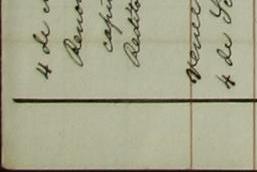 4 de
Reno
capi
Redito
Vence
4 de Se